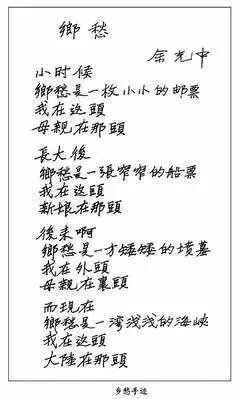 鄉愁
余光中
小时候
鄉愁是一枚小小的邮票
我在这頭
母親在那頭
長大後
鄉愁是一張窄窄的船票
我在这頭
新娘在那頭
後来啊
鄉愁是一方矮矮的墳墓
我在外頭
母親在裏頭
而现在
鄉愁是一湾浅浅的海峡
我在这頭
大陸在那頭
乡愁手迹